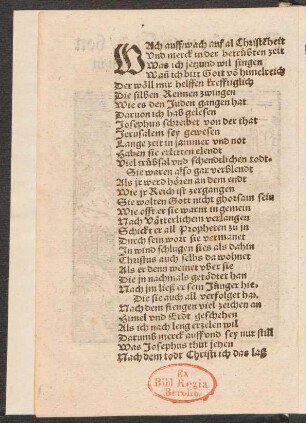 WAch auff/wach auf al Christēheit
Vnd merck inder betrübten zeit
Was ich jetzund wil singen
Wañ ich bitt Gott võ himelreich
Der wöll mir helffen krefftiglich
Die silben Reimen zwingen
Wie es den Juden gangen hat
Daruon ich hab gelesen
Josephus schreibet von der that
Jerusalem sey gewesen
Lange zeit in jammer vnd not
Haben sie erlitten elendt
Viel trübsal vnd schendtlichen todt.
Sie waren also gar verblendt
Als jr werd hören an dem endt
Wie jr Reich ist zergangen
Sie wolten Gott nicht ghorsam sein
Wie offt er sie warnt in gemein
Nach Vätterlichem verlangen
Schickt er all Propheten zu jn
Durch sein wort sie vermanet
In wind schlugen sies als dahin
Christus auch selbs da wohnet
Als er denn weinet vber sie
Die jn nachmals getödtet han
Nach jm ließ er sein Jünger hie.
Die sie auch all verfolget han,
Nach dem fiengen viel zeichen an
Himel vnd Erdt geschehen
Als ich nach leng erzelen wil
Darumb merck auff vnd sey nur still
Was Josephus thut jehen
Nach dem todt Christi ich das laß
Ex
Bibl. Regia
Berolin.